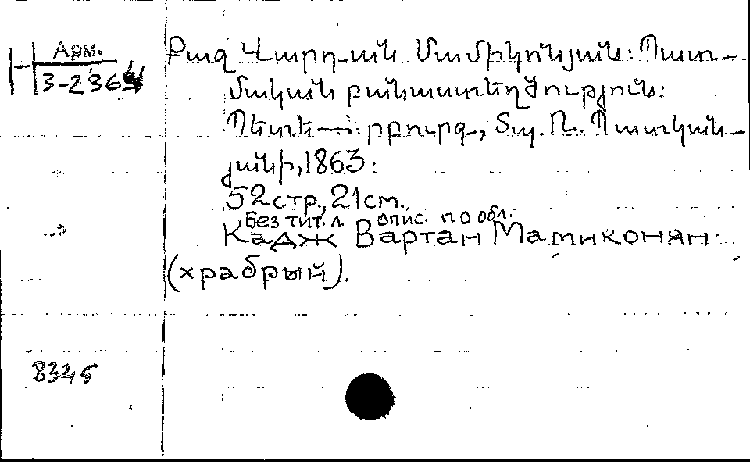 Арм.
3-2364
Քաջ Վարդան Մամիկոնյան: Պատ-
մական բանաստեղծություն:
Պետե—րբուրգ, Տպ. Ռ. Պատկան-
յանի, 1863:
52 стр., 21 см.
Без тит. л. опис. по обл.
Кадж Вартан Мамиконян
(храбрый).
8345